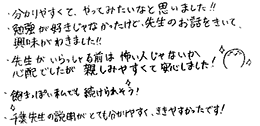 ・分かりやすくて、やってみたいなと思いました!!
・勉強が好きじゃなかったけど、先生のお話をきいて、
興味がわきました!!
・先生がいらっしゃる前は怖い人じゃないか
心配でしたが親しみやすくて安心しました!
・飽きっぽい私でも続けられそう!
・千葉先生の説明がとても分かりやすく、ききやすかったです!